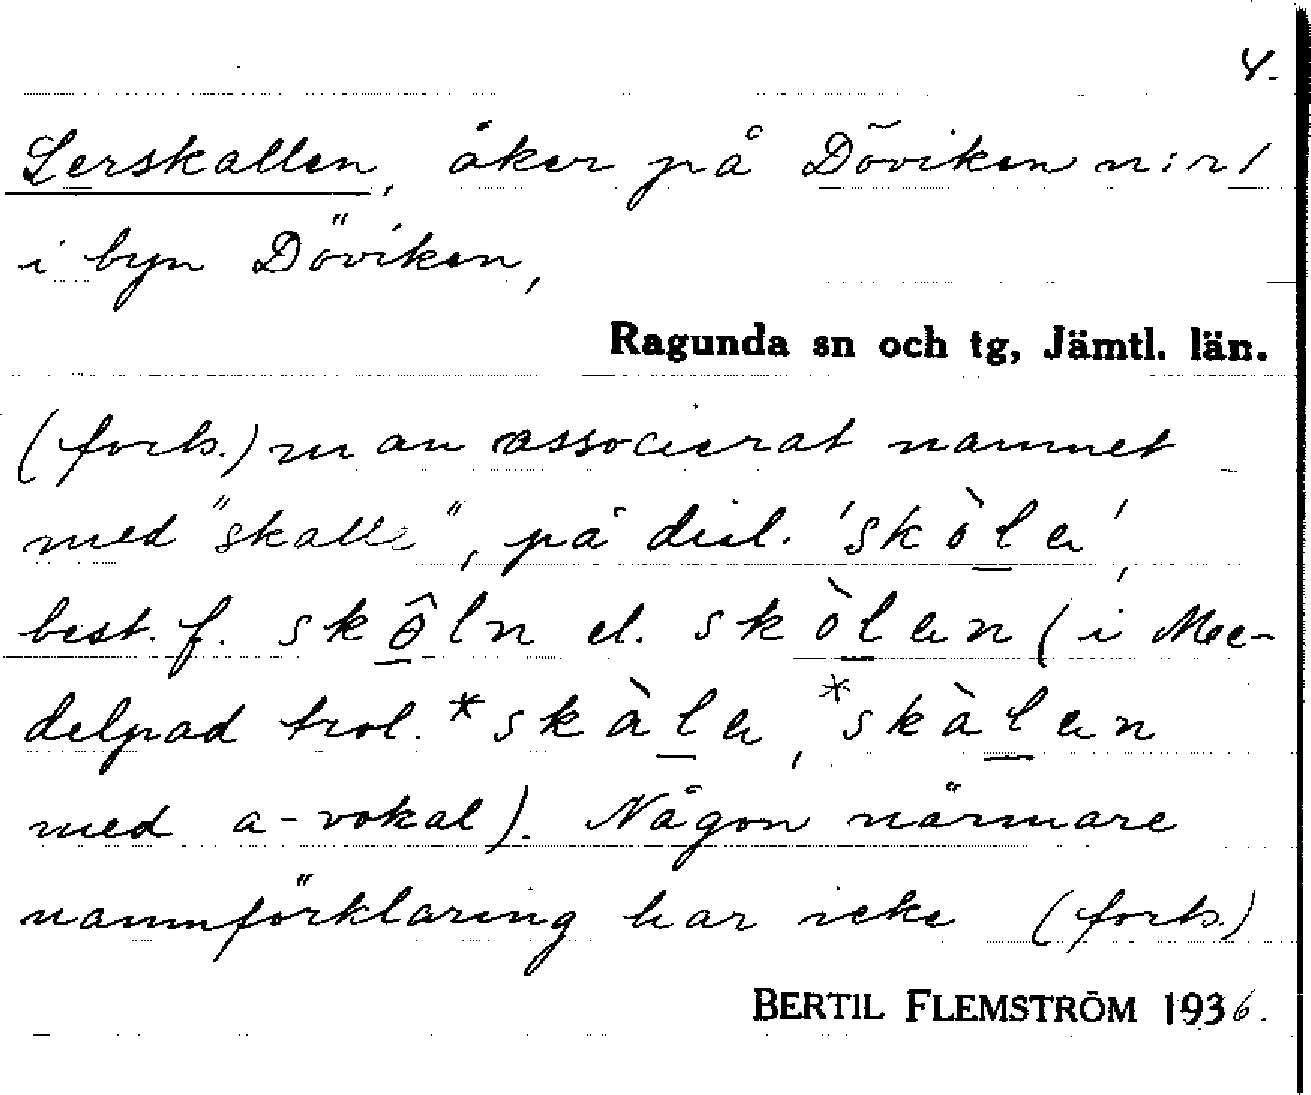 4.
Lerskallen, åker på Döviken n:r 1
i byn Döviken,
Ragunda sn och tg, Jämtl. län.
(forts.) man associerat namnet
med "skalle", på dial. 'skòla',
best. f. skôln el. skòlan (i Me-
delpad trol. *skàla, *skàlan
med a-vokal). Någon närmare
namnförklaring har icke (forts.)
BERTIL FLEMSTRÖM 1936.